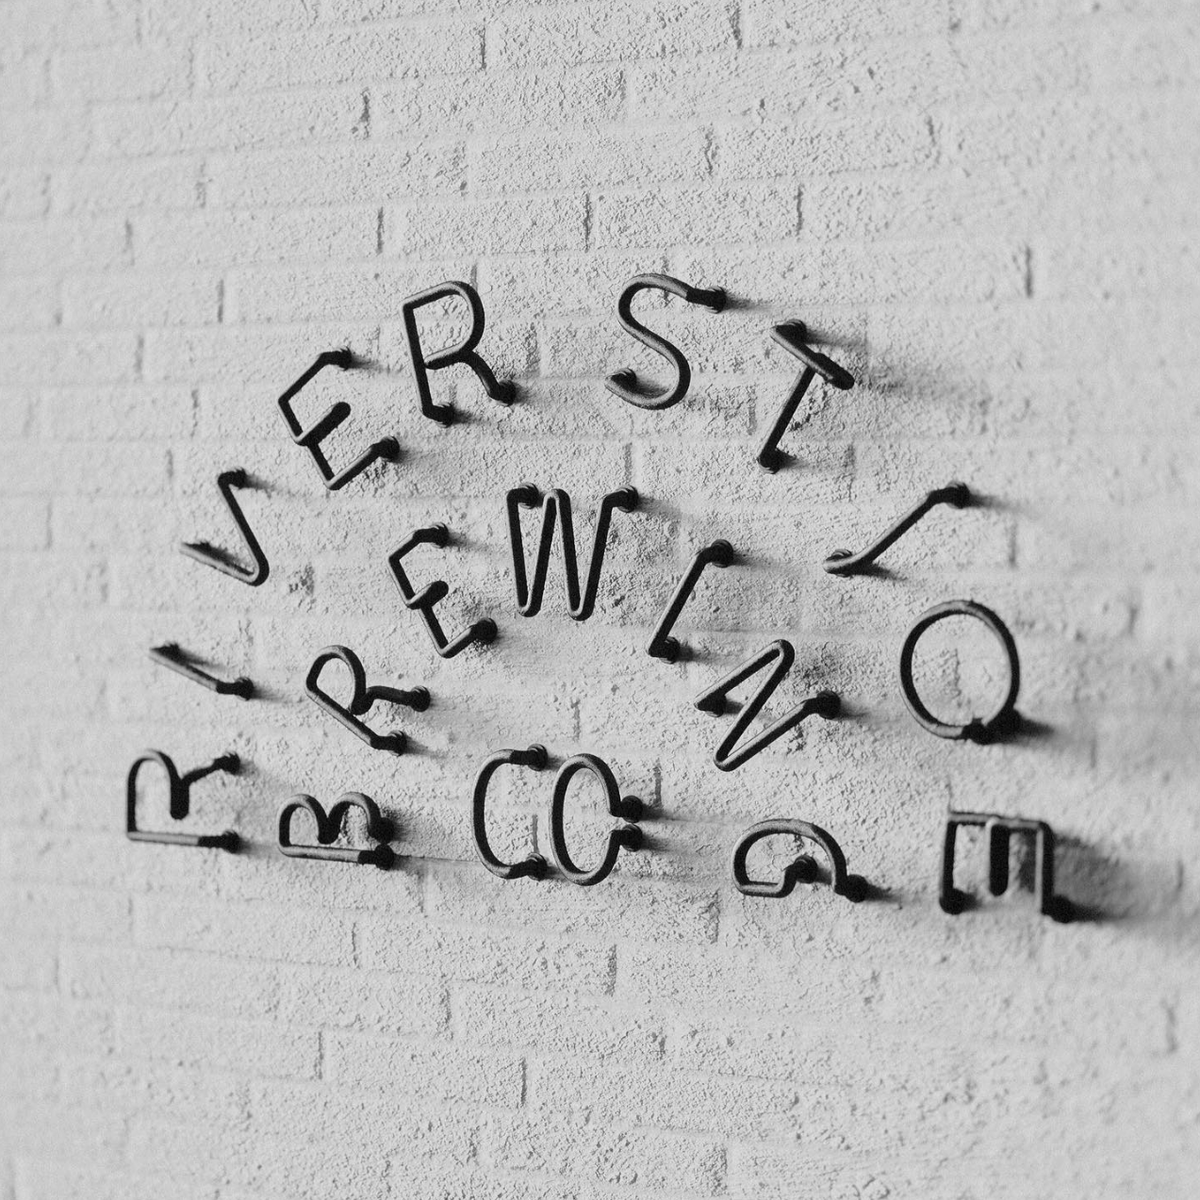 RIVER ST JOE
BREWING
CO